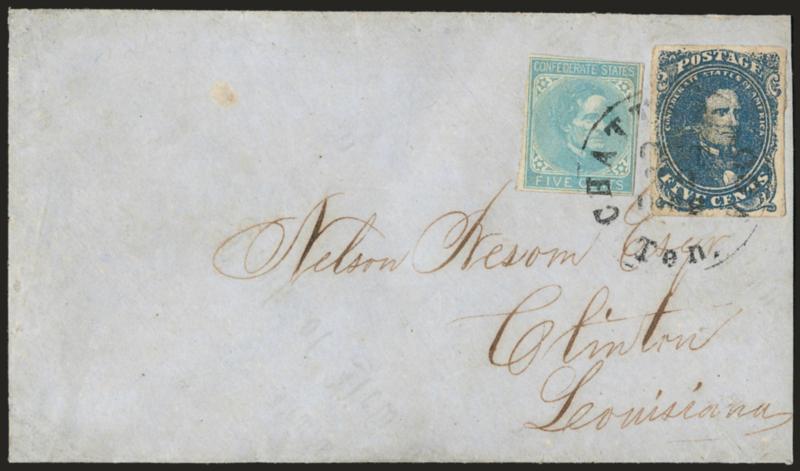 CONFEDERATE STATES
FIVE CENTS
POSTAGE
CONFEDERATE STATES OF AMERICA
FIVE CENTS
CHATT
Ten.
Nelson Nesom Esqr
Clinton
Louisiana